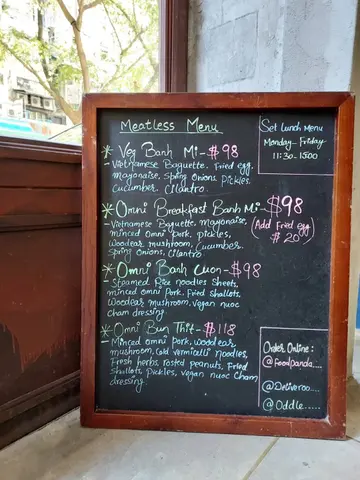 Meatless Menu
Set Lunch Menu
Monday - Friday
11:30 - 15:00
* Veg Banh Mi - $98
- Vietnamese Baguette. Fried egg,
mayonaise, Spring Onions, pickles,
cucumber. Cilantro.
* Omni Breakfast Banh Mi - $98
(Add Fried egg)
$20
- Vietnamese Baguette. mayonaise,
minced Omni Pork, pickles,
Woodear mushroom, Cucumber.
Spring onions, Cilantro
* Omni Banh Cuon - $98
- Steamed Rice noodles Sheets,
minced omni Pork. Fried shallots,
Woodear mushroom, Vegan nuoc
cham dressing.
* Omni Bun Thit - $118
- Minced omni pork, wood ear
mushroom, Cold vermicelli noodles,
Fresh herbs, rosted peanuts, Fried
shallots, pickles, vegan nuoc Cham
dressing.
Order Online:
@foodpanda....
@Deliveroo....
@Oddle......